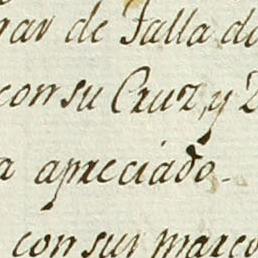 de Talla de
con su Cruz, y
a apreciado.
con sus marco